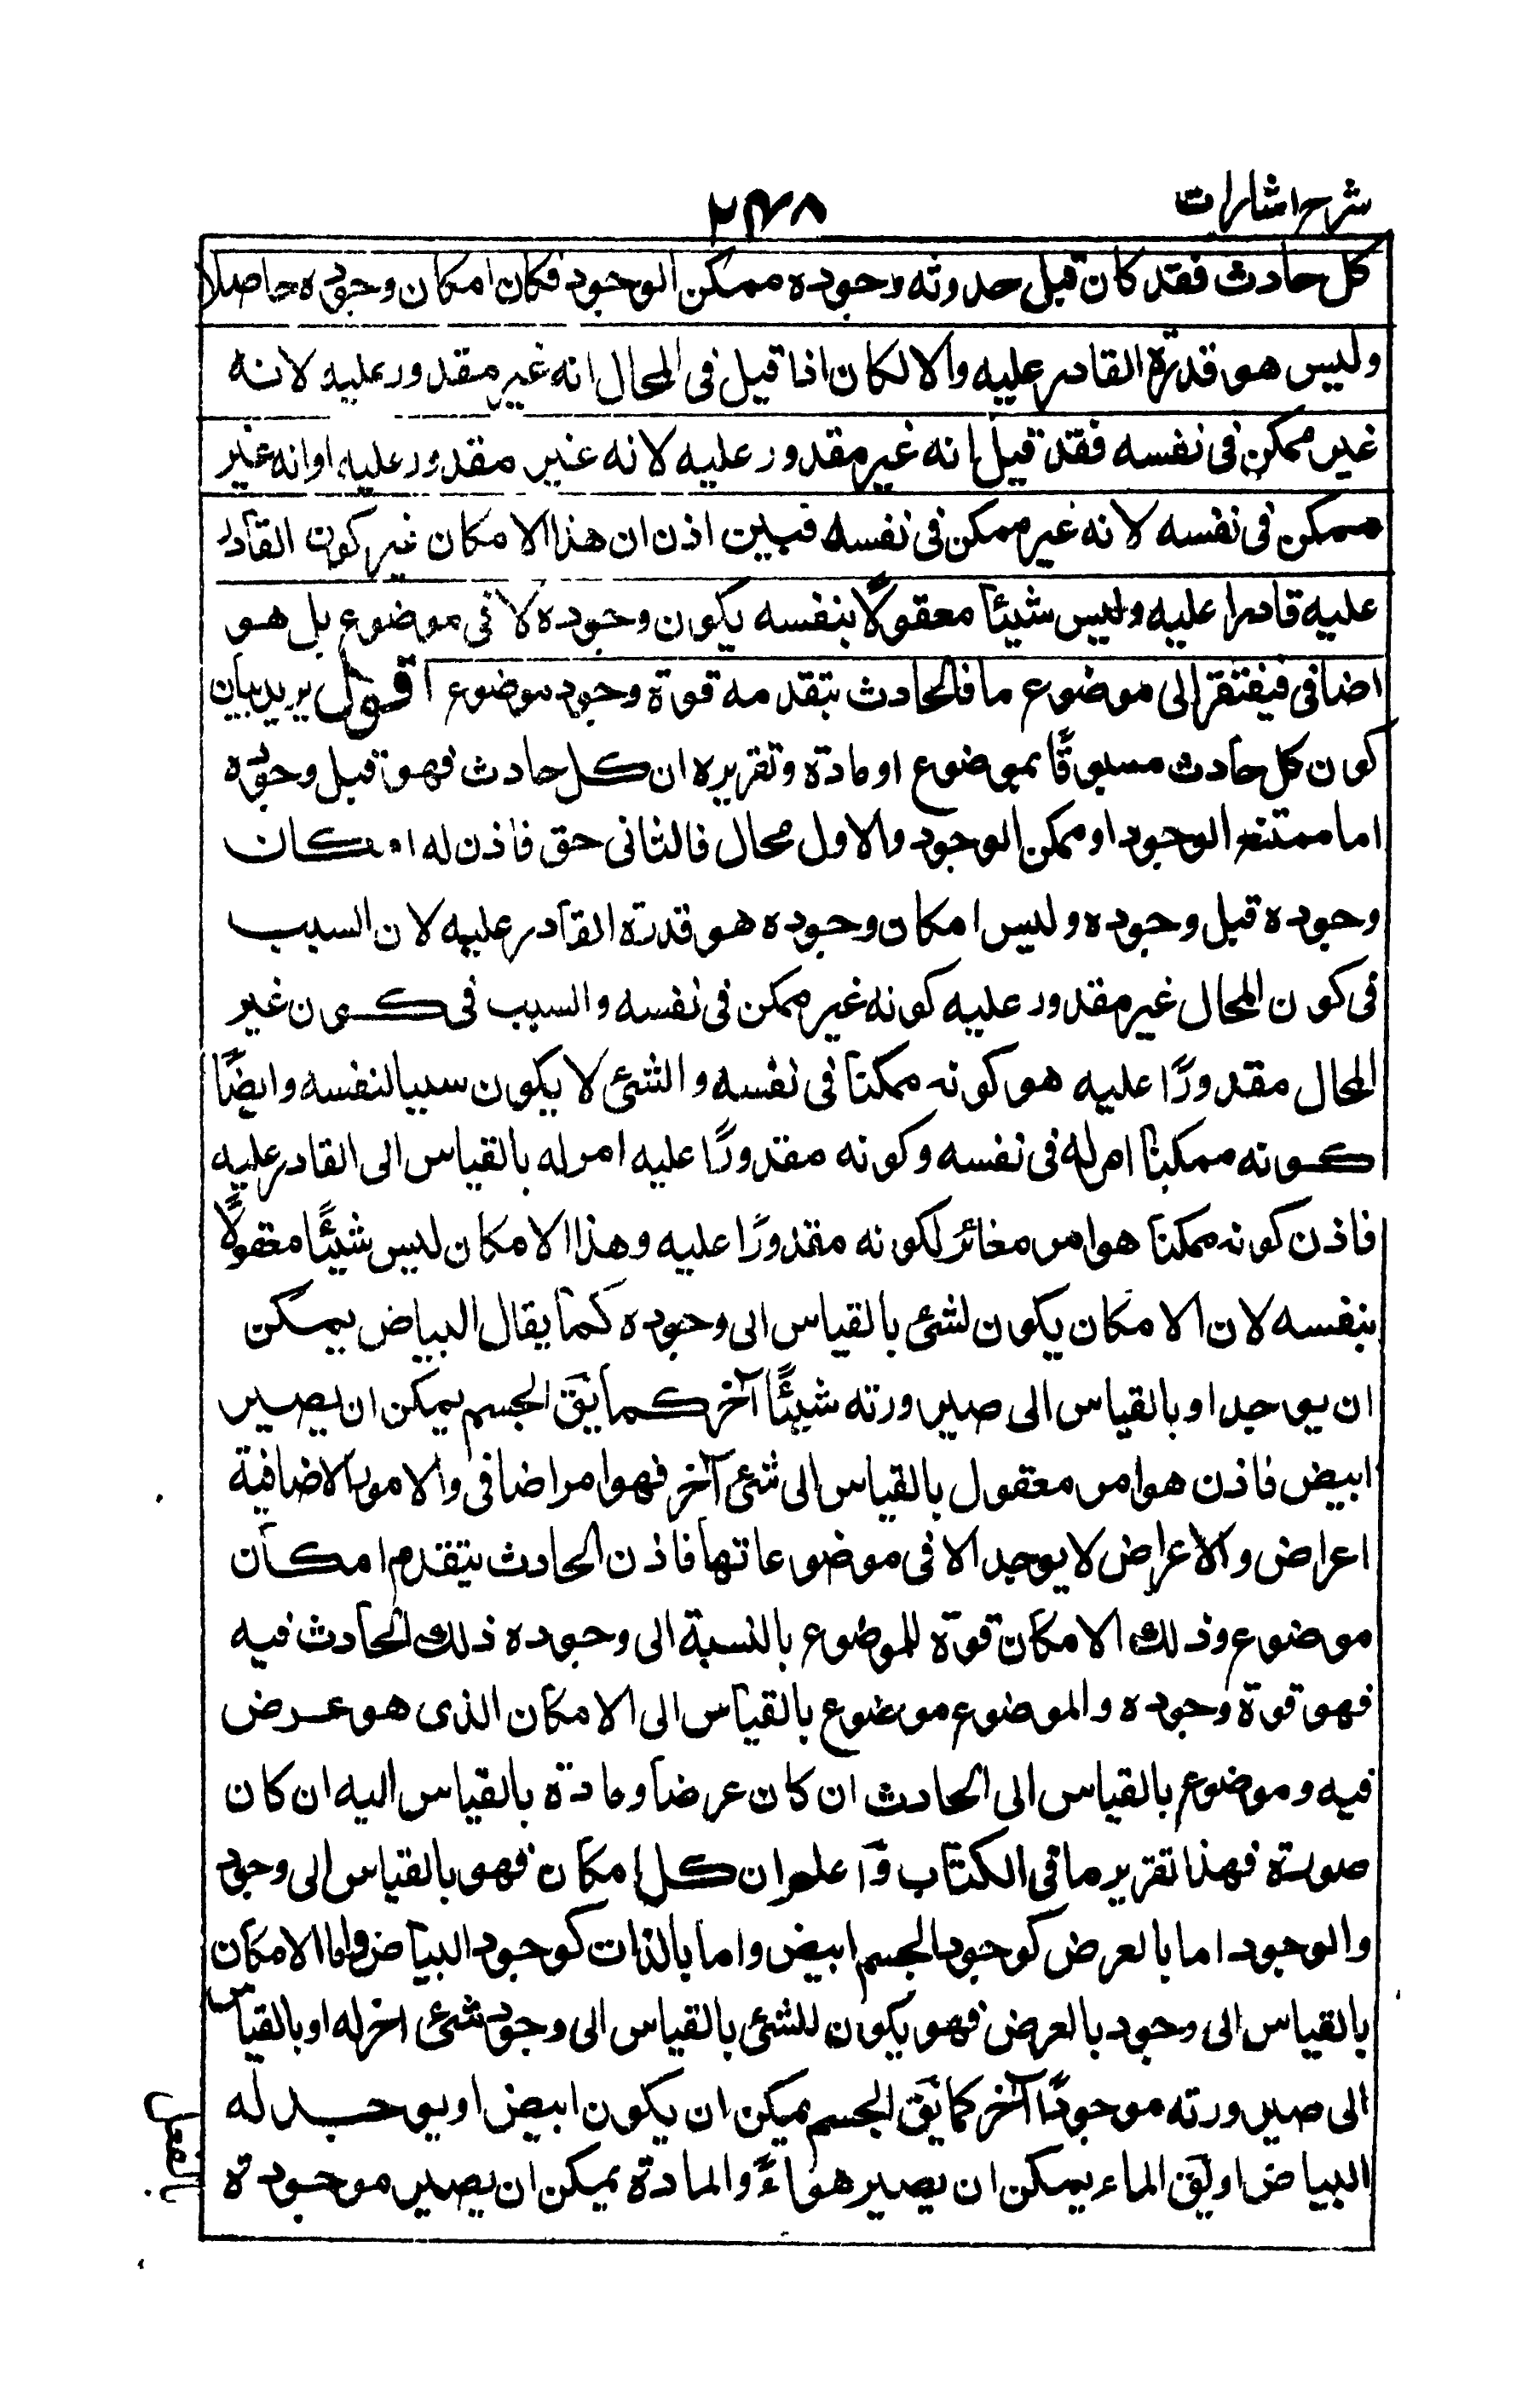 شرح اشارات
٢٣٨
كل حادث فقد كان قبل حدوثه وجوده ممكن الوجود فكان امكان وجوده حاصلا
وليس هو قدرة القادر عليه والا لكان اذا قيل فى المحال انه غير مقدور عليه لانه
غير ممكن فى نفسه فقد قيل انه غير مقدور عليه لانه غير مقدور عليه او انه غير
ممكن فى نفسه لانه غير ممكن فى نفسه فبين اذن ان هذا الامكان غير كون القادر
عليه قادرا عليه وليس شيئا معقولًا بنفسه يكون وجوده لا فى موضوع بل هو
اضافى فيفتقر الى موضوع ما فالحادث يتقدمه قوة وجود موضوع اقول يريد بيان
كون كل حادث مسبوقًا بموضوع او مادة وتقريره ان كل حادث فهو قبل وجوده
اما ممتنع الوجود او ممكن الوجود والاول محال فالثانى حق فاذن له امكان
وجوده قبل وجوده وليس امكان وجوده هو قدرة القادر عليه لان السبب
فى كون المحال غير مقدور عليه كونه غير ممكن فى نفسه والسبب فى كون غير
المحال مقدورًا عليه هو كونه ممكنا فى نفسه والشئ لا يكون سببا لنفسه وايضًا
كونه ممكنًا امر له فى نفسه وكونه مقدورًا عليه امر له بالقياس الى القادر عليه
فاذن كونه ممكنا هو امر مغائر لكونه مقدورًا عليه وهذا الامكان ليس شيئًا معقولًا
بنفسه لان الامكان يكون لشئ بالقياس الى وجوده كما يقال البياض يمكن
ان يوجد او بالقياس الى صيرورته شيئًا آخر كما يق الجسم يمكن ان يصير
ابيض فاذن هو امر معقول بالقياس الى شئ آخر فهو امر اضافى والامور الاضافية
اعراض والاعراض لا يوجد الا فى موضوعاتها فاذن الحادث يتقدم امكان
موضوع وذلك الامكان قوة للموضوع بالنسبة الى وجوده ذلك الحادث فيه
فهو قوة وجوده والموضوع موضوع بالقياس الى الامكان الذى هو عرض
فيه وموضوع بالقياس الى الحادث ان كان عرضا ومادة بالقياس اليه ان كان
صورة فهذا تقرير ما فى الكتاب وآعلم ان كل امكان فهو بالقياس الى وجود
والوجود اما بالعرض كوجود الجسم ابيض واما بالذات كوجود البياض واما الامكان
بالقياس الى وجود بالعرض فهو يكون للشئ بالقياس الى وجود شئ اخر له او بالقياس
الى صيرورته موجودًا آخر كما يق الجسم يمكن ان يكون ابيض او يوجد له
البياض او يق الماء يمكن ان يصير هواءً والمادة يمكن ان يصير موجودة
بالفعل